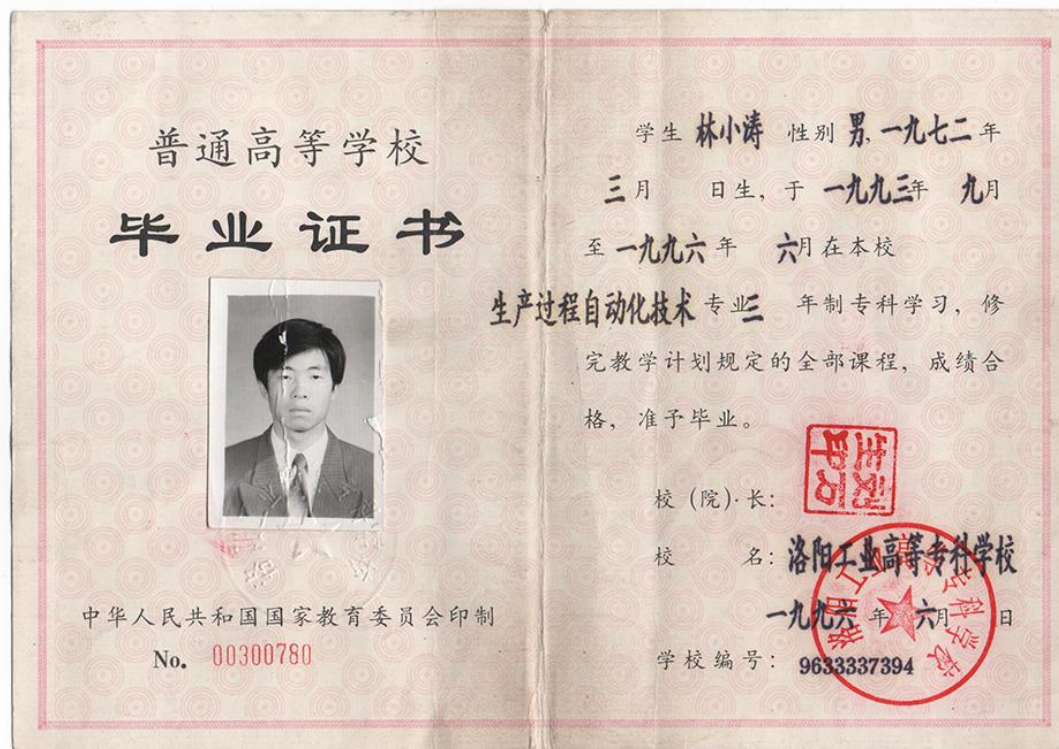 普通高等学校
毕业证书
中华人民共和国国家教育委员会印制
No. 00300780
学生 林小涛 性别 男, 一九七二年
三月 日生, 于 一九九三年 九月
至 一九九六年 六月在本校
生产过程自动化技术 专业三 年制专科学习, 修
完教学计划规定的全部课程, 成绩合
格, 准予毕业。
校 (院)·长:
校 名: 洛阳工业高等专科学校
一九九六 年 六月 日
学校编号: 9633337394
洛阳工业高等专科学校